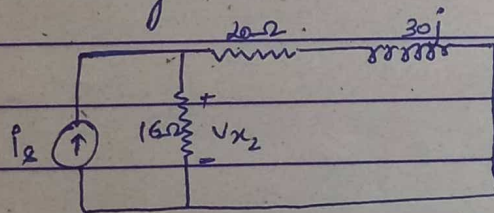 20Ω 30j
16Ω
+
Vx2
-